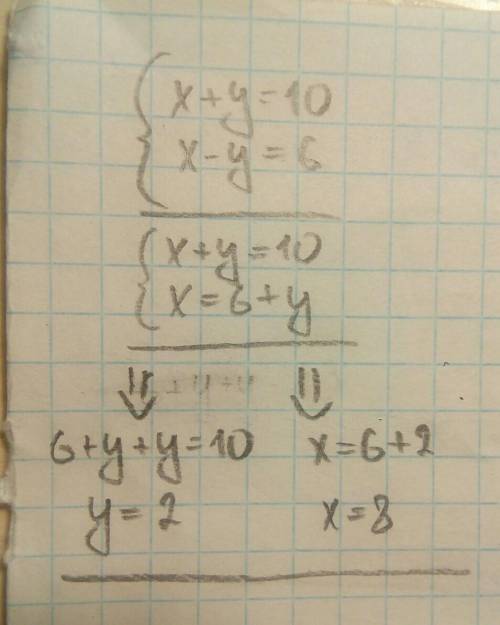 x+y=10
x-y=6
x+y=10
x=6+y
6+y+y=10 x=6+2
y=2 x=8